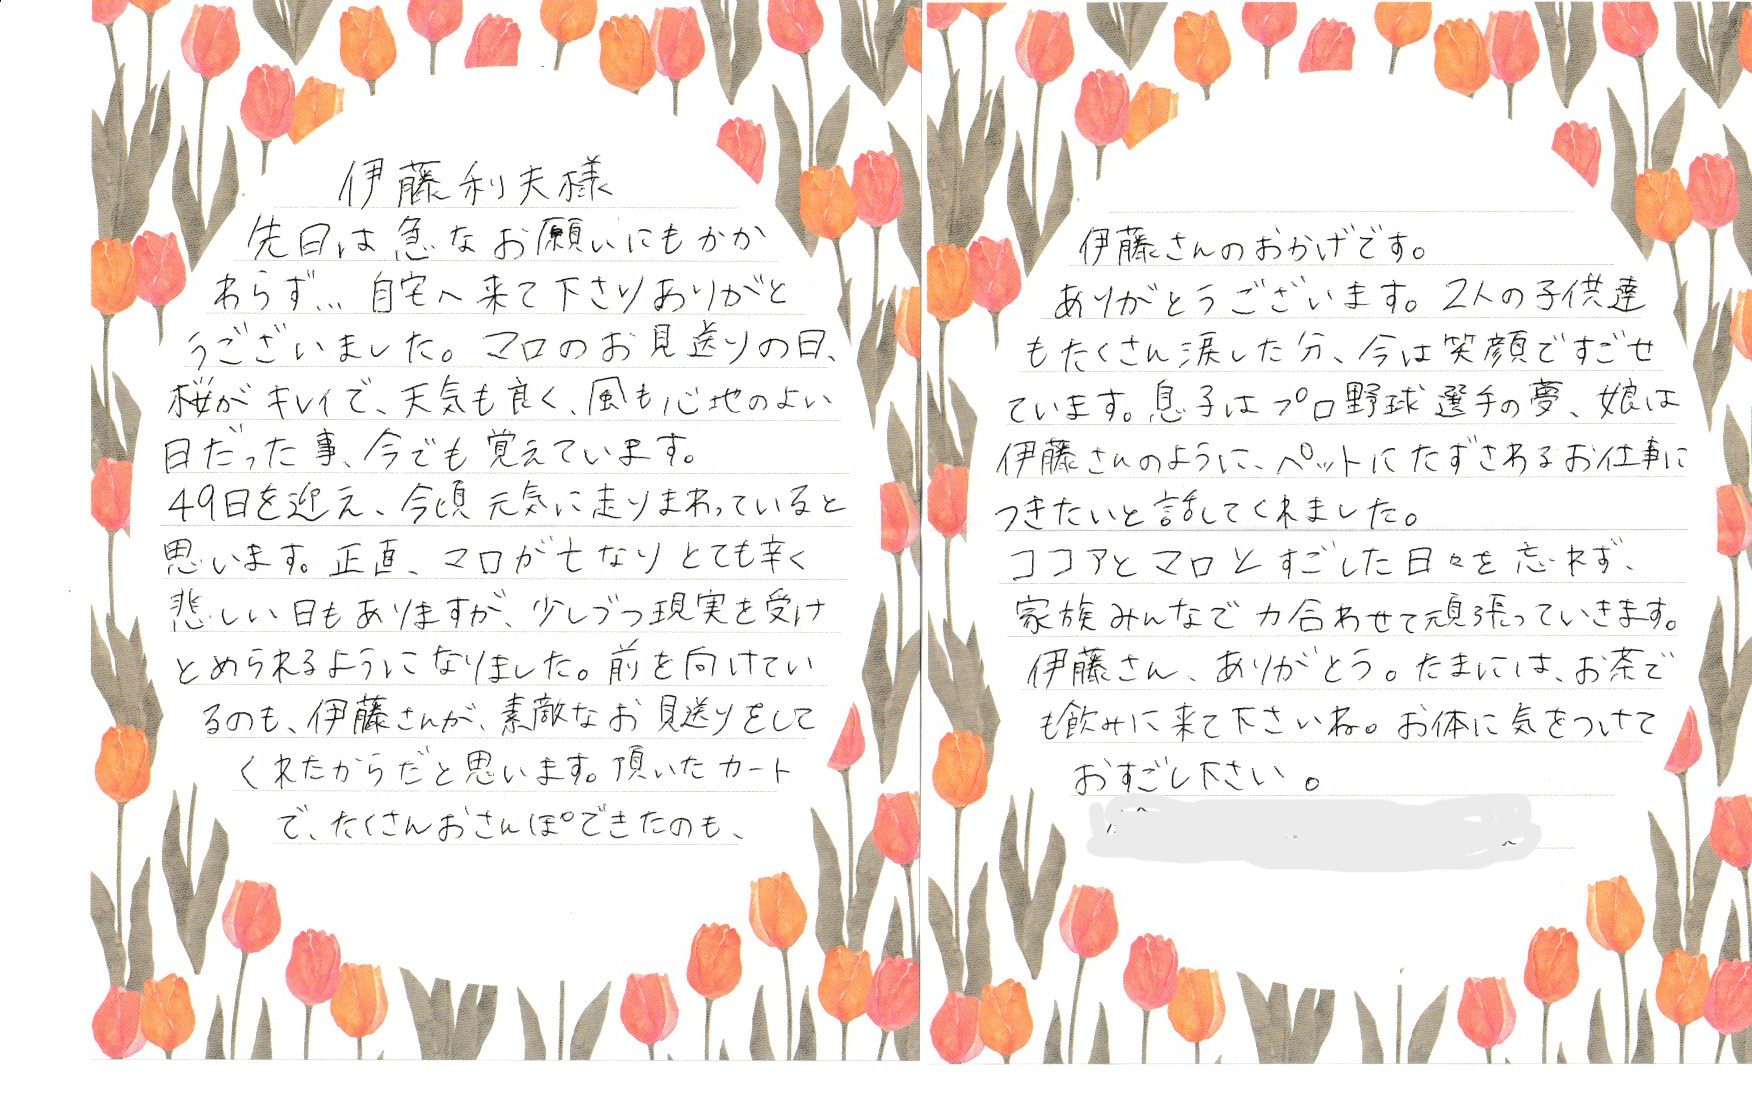 伊藤利夫様
先日は急なお願いにもかか
わらず… 自宅へ来て下さりありがと
うございました。マロのお見送りの日、
桜がキレイで、天気も良く、風も心地のよい
日だった事、今でも覚えています。
49日を迎え、今頃元気に走りまわっていると
思います。正直、マロが亡なりとても辛く
悲しい日もありますが、少しづつ現実を受け
とめられるようになりました。前を向けてい
るのも、伊藤さんが、素敵なお見送りをして
くれたからだと思います。頂いたカート
で、たくさんおさんぽできたのも、
伊藤さんのおかげです。
ありがとうございます。2人の子供達
もたくさん涙した分、今は笑顔ですごせ
ています。息子はプロ野球選手の夢、娘は
伊藤さんのように、ペットにたずさわるお仕事に
つきたいと話してくれました。
ココアとマロとすごした日々を忘れず、
家族みんなで力合わせて頑張っていきます。
伊藤さん、ありがとう。たまには、お茶で
も飲みに来て下さいね。お体に気をつけて
おすごし下さい。